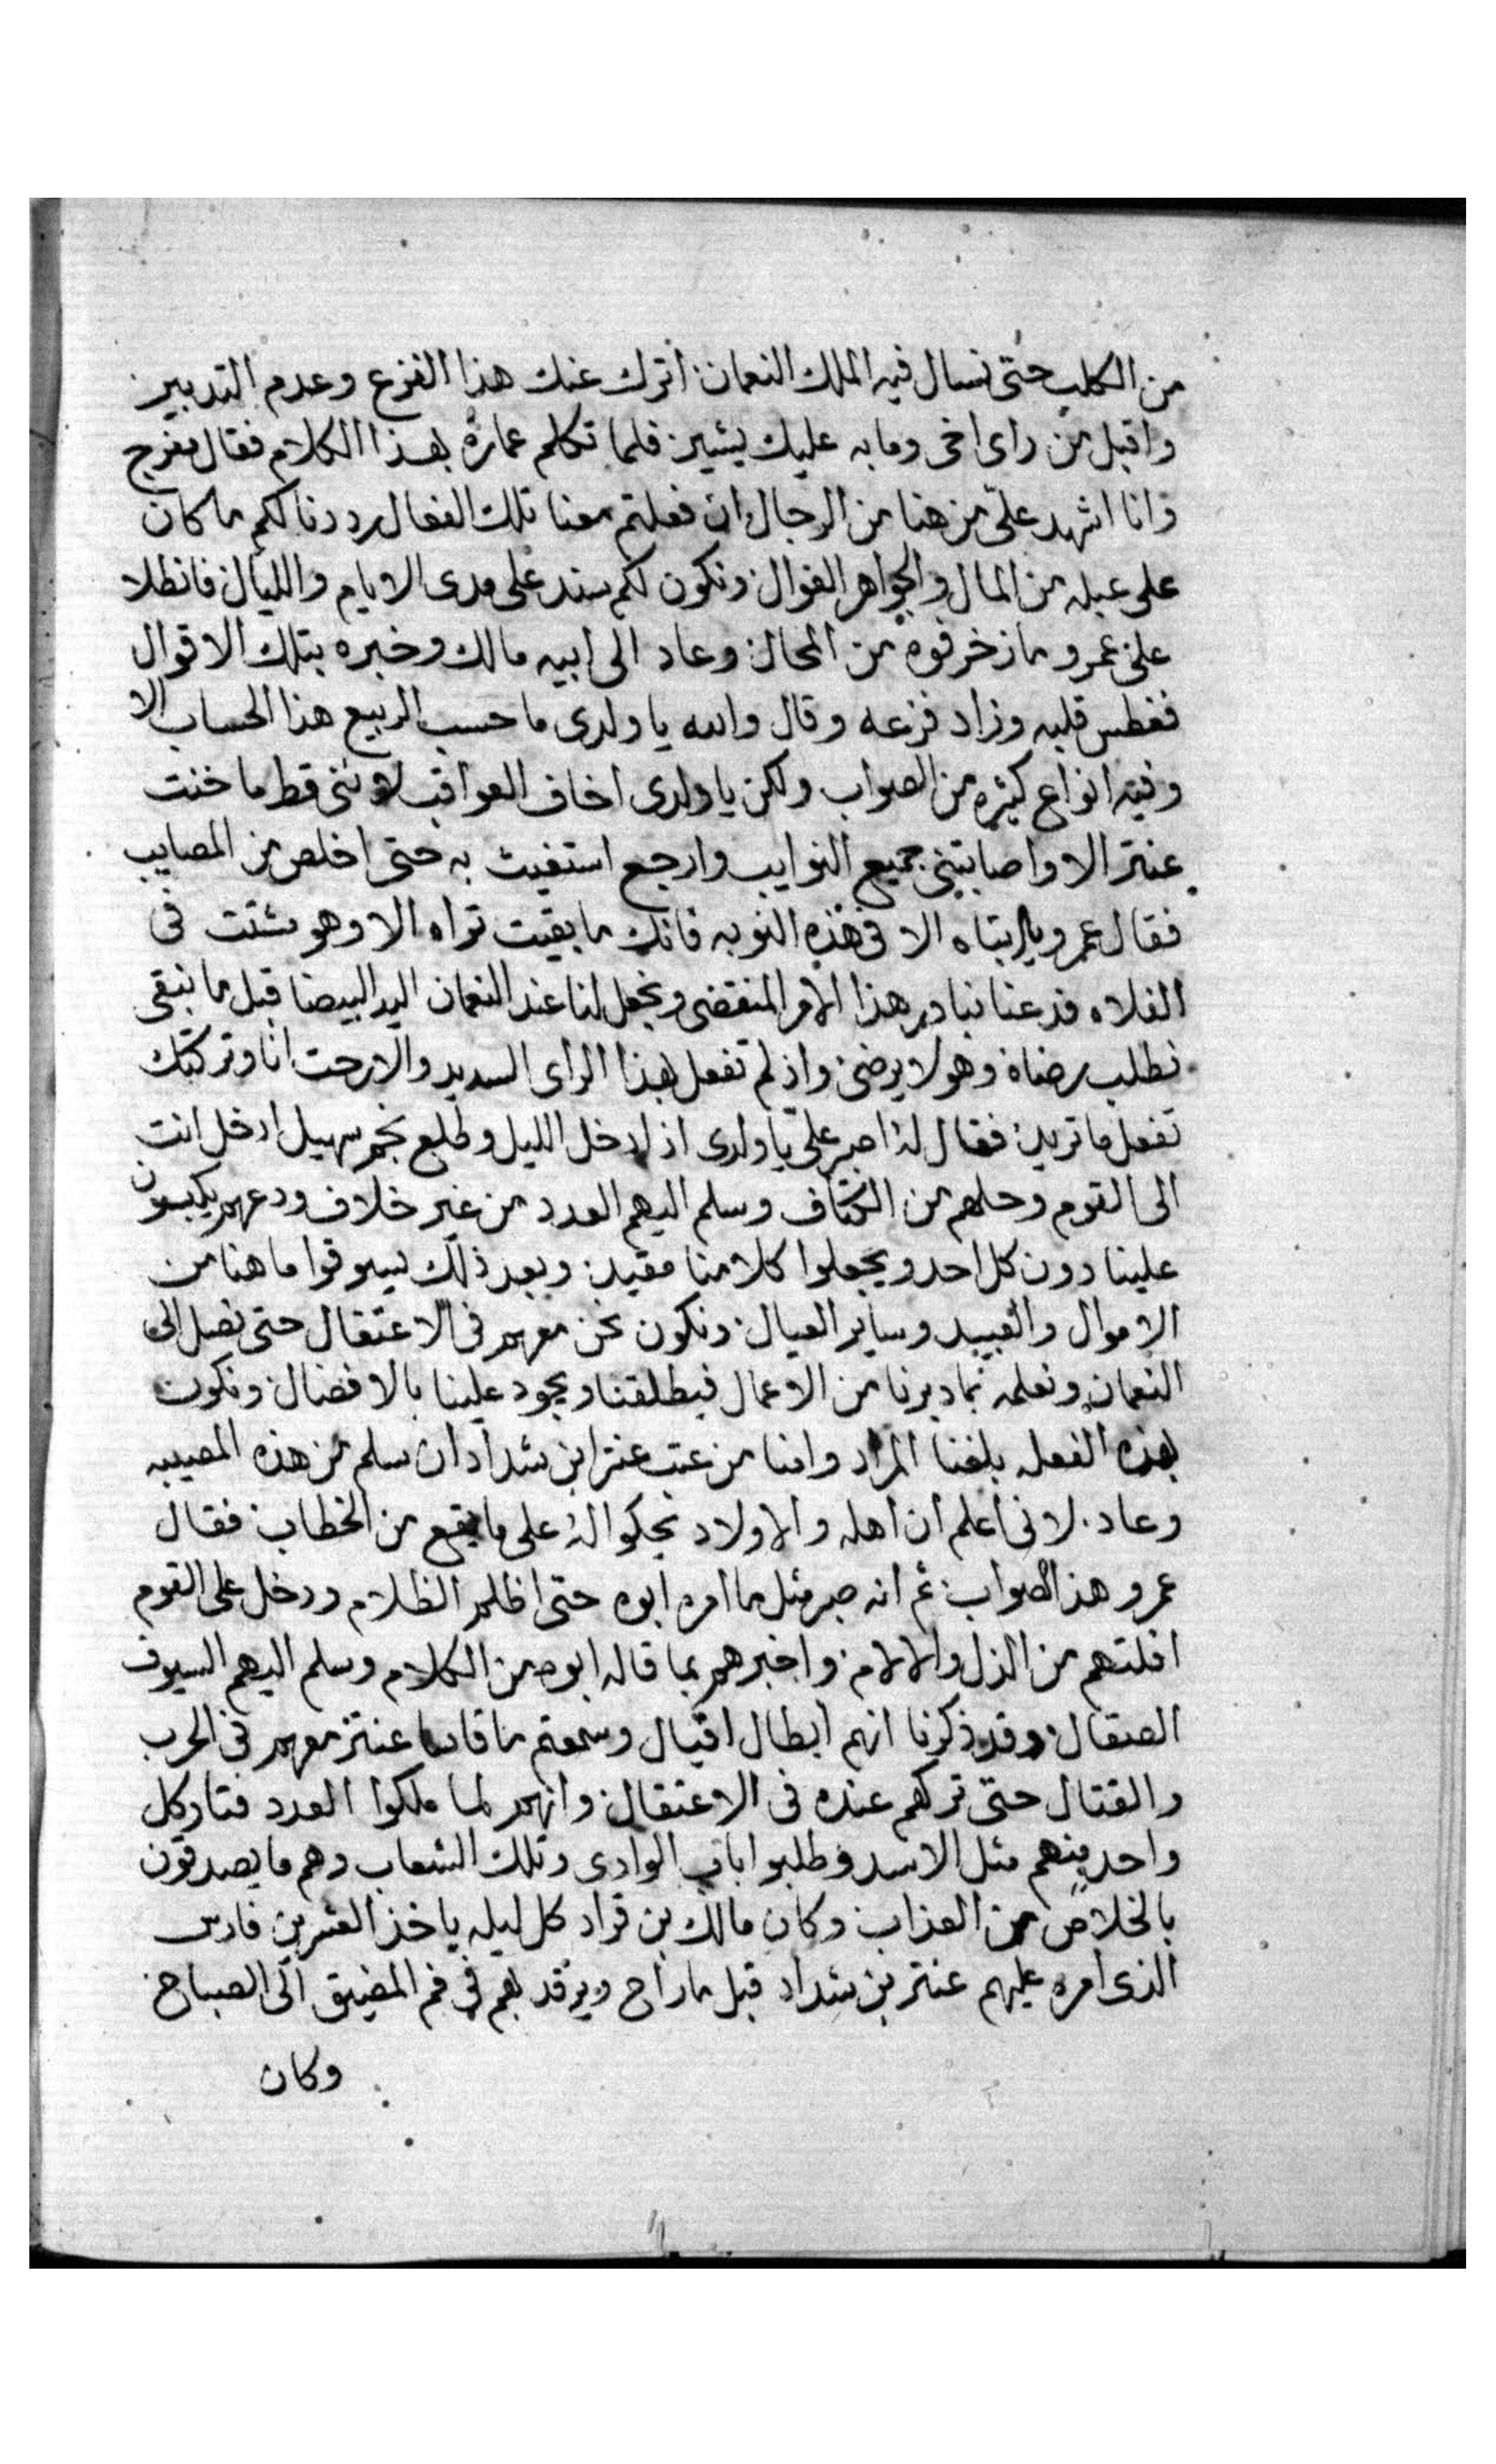 من الكلب حتى نسال فيه الملك النعمان اترك عنك هذا الفزع وعدم التدبير
واقبل من راى اخى وما به عليك يشير فلما تكلم عمارة بهذا الكلام فقال مفرج
وانا اشهد علىّ من هنا من الرجال ان فعلتم معنا تلك الفعال رددنا لكم ما كان
على عبله من المال والجواهر الغوال ونكون لكم سند على مدى الايام والليال فانطلا
على عمرو ما زخرفوه من المحال وعاد الى ابيه مالك وخبره بتلك الاقوال
فغطس قلبه وزاد فزعه وقال والله يا ولدى ما حسب الربيع هذا الحساب الا
وفيه انواع كثيره من الصواب ولكن يا ولدى اخاف العواقب لاننى قط ما خنت
عنتر الا واصابتنى جميع النوايب وارجع استغيث به حتى اخلص من المصايب
فقال عمرو يا ابتاه الا فى هذه النوبه فانك ما بقيت تراه الا وهو مشتت فى
الفلاه فدعنا نبادر هذا الامر المنقضى ونجعل لنا عند النعمان اليد البيضا قبل ما نبقى
نطلب رضاه وهو لا يرضى واذ لم تفعل هذا الراى السديد والا رحت انا وتركتك
تفعل ما تريد فقال له اصبر علىّ يا ولدى اذا دخل الليل وطلع نجم سهيل ادخل انت
الى القوم وحلهم من الكتاف وسلم اليهم العدد من غير خلاف ودعهم يكبسون
علينا دون كل احد ويجعلوا كلا منا مقيد وبعد ذلك يسوقوا ما هنا من
الاموال والعبيد وساير العيال ونكون نحن معهم فى الاعتقال حتى نصل الى
النعمان ونعلمه بما دبرنا من الاعمال فيطلقنا ويجود علينا بالافضال ونكون
بهذه الفعله بلغنا المراد وامنا من عتب عنتر ابن شداد ان سلم من هذه المصيبه
وعاد لانى اعلم ان اهله والاولاد يحكوا له على ما يقع من الخطاب فقال
عمرو هذا الصواب ثم انه صبر مثل ما امره ابوه حتى اظلم الظلام ودخل على القوم
افلتهم من الذل والالام واخبرهم بما قاله ابوه من الكلام وسلم اليهم السيوف
الصقال وقد ذكرنا انهم ابطال اقيال وسمعتم ما قاسا عنتر معهم فى الحرب
والقتال حتى تركهم عنده فى الاعتقال وانهم لما ملكوا العدد فتار كل
واحد منهم مثل الاسد وطلبوا باب الوادى وتلك الشعاب وهم ما يصدقون
بالخلاص من العذاب وكان مالك بن قراد كل ليله ياخذ العشرين فارس
الذى امره عليهم عنتر بن شداد قبل ما راح ويرقد بهم فى فم المضيق الى الصباح
وكان